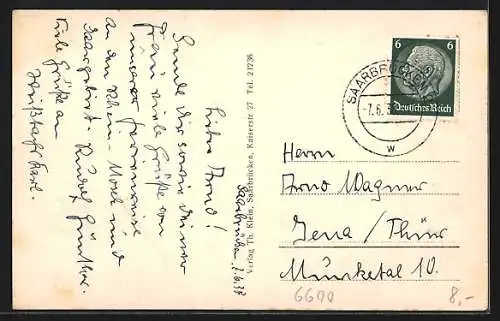 Saarbrücken, 7.6.38
Lieber Arno!
Sende Dir sowie Deiner
Frau viele Grüße von
unserer Ferienreise
an den Rhein-Mosel und
Saargebiet. Rudolf Günther.
Viele Grüße an
Karl.
Verlag Th. Klein, Saarbrücken, Kaiserstr. 27 Tel. 21736
6 6
Deutsches Reich
SAARBRÜCKEN
-7.6.3
w
Herrn
Arno Wagner
Jena / Thür
Münketal 10.
6600
8,-